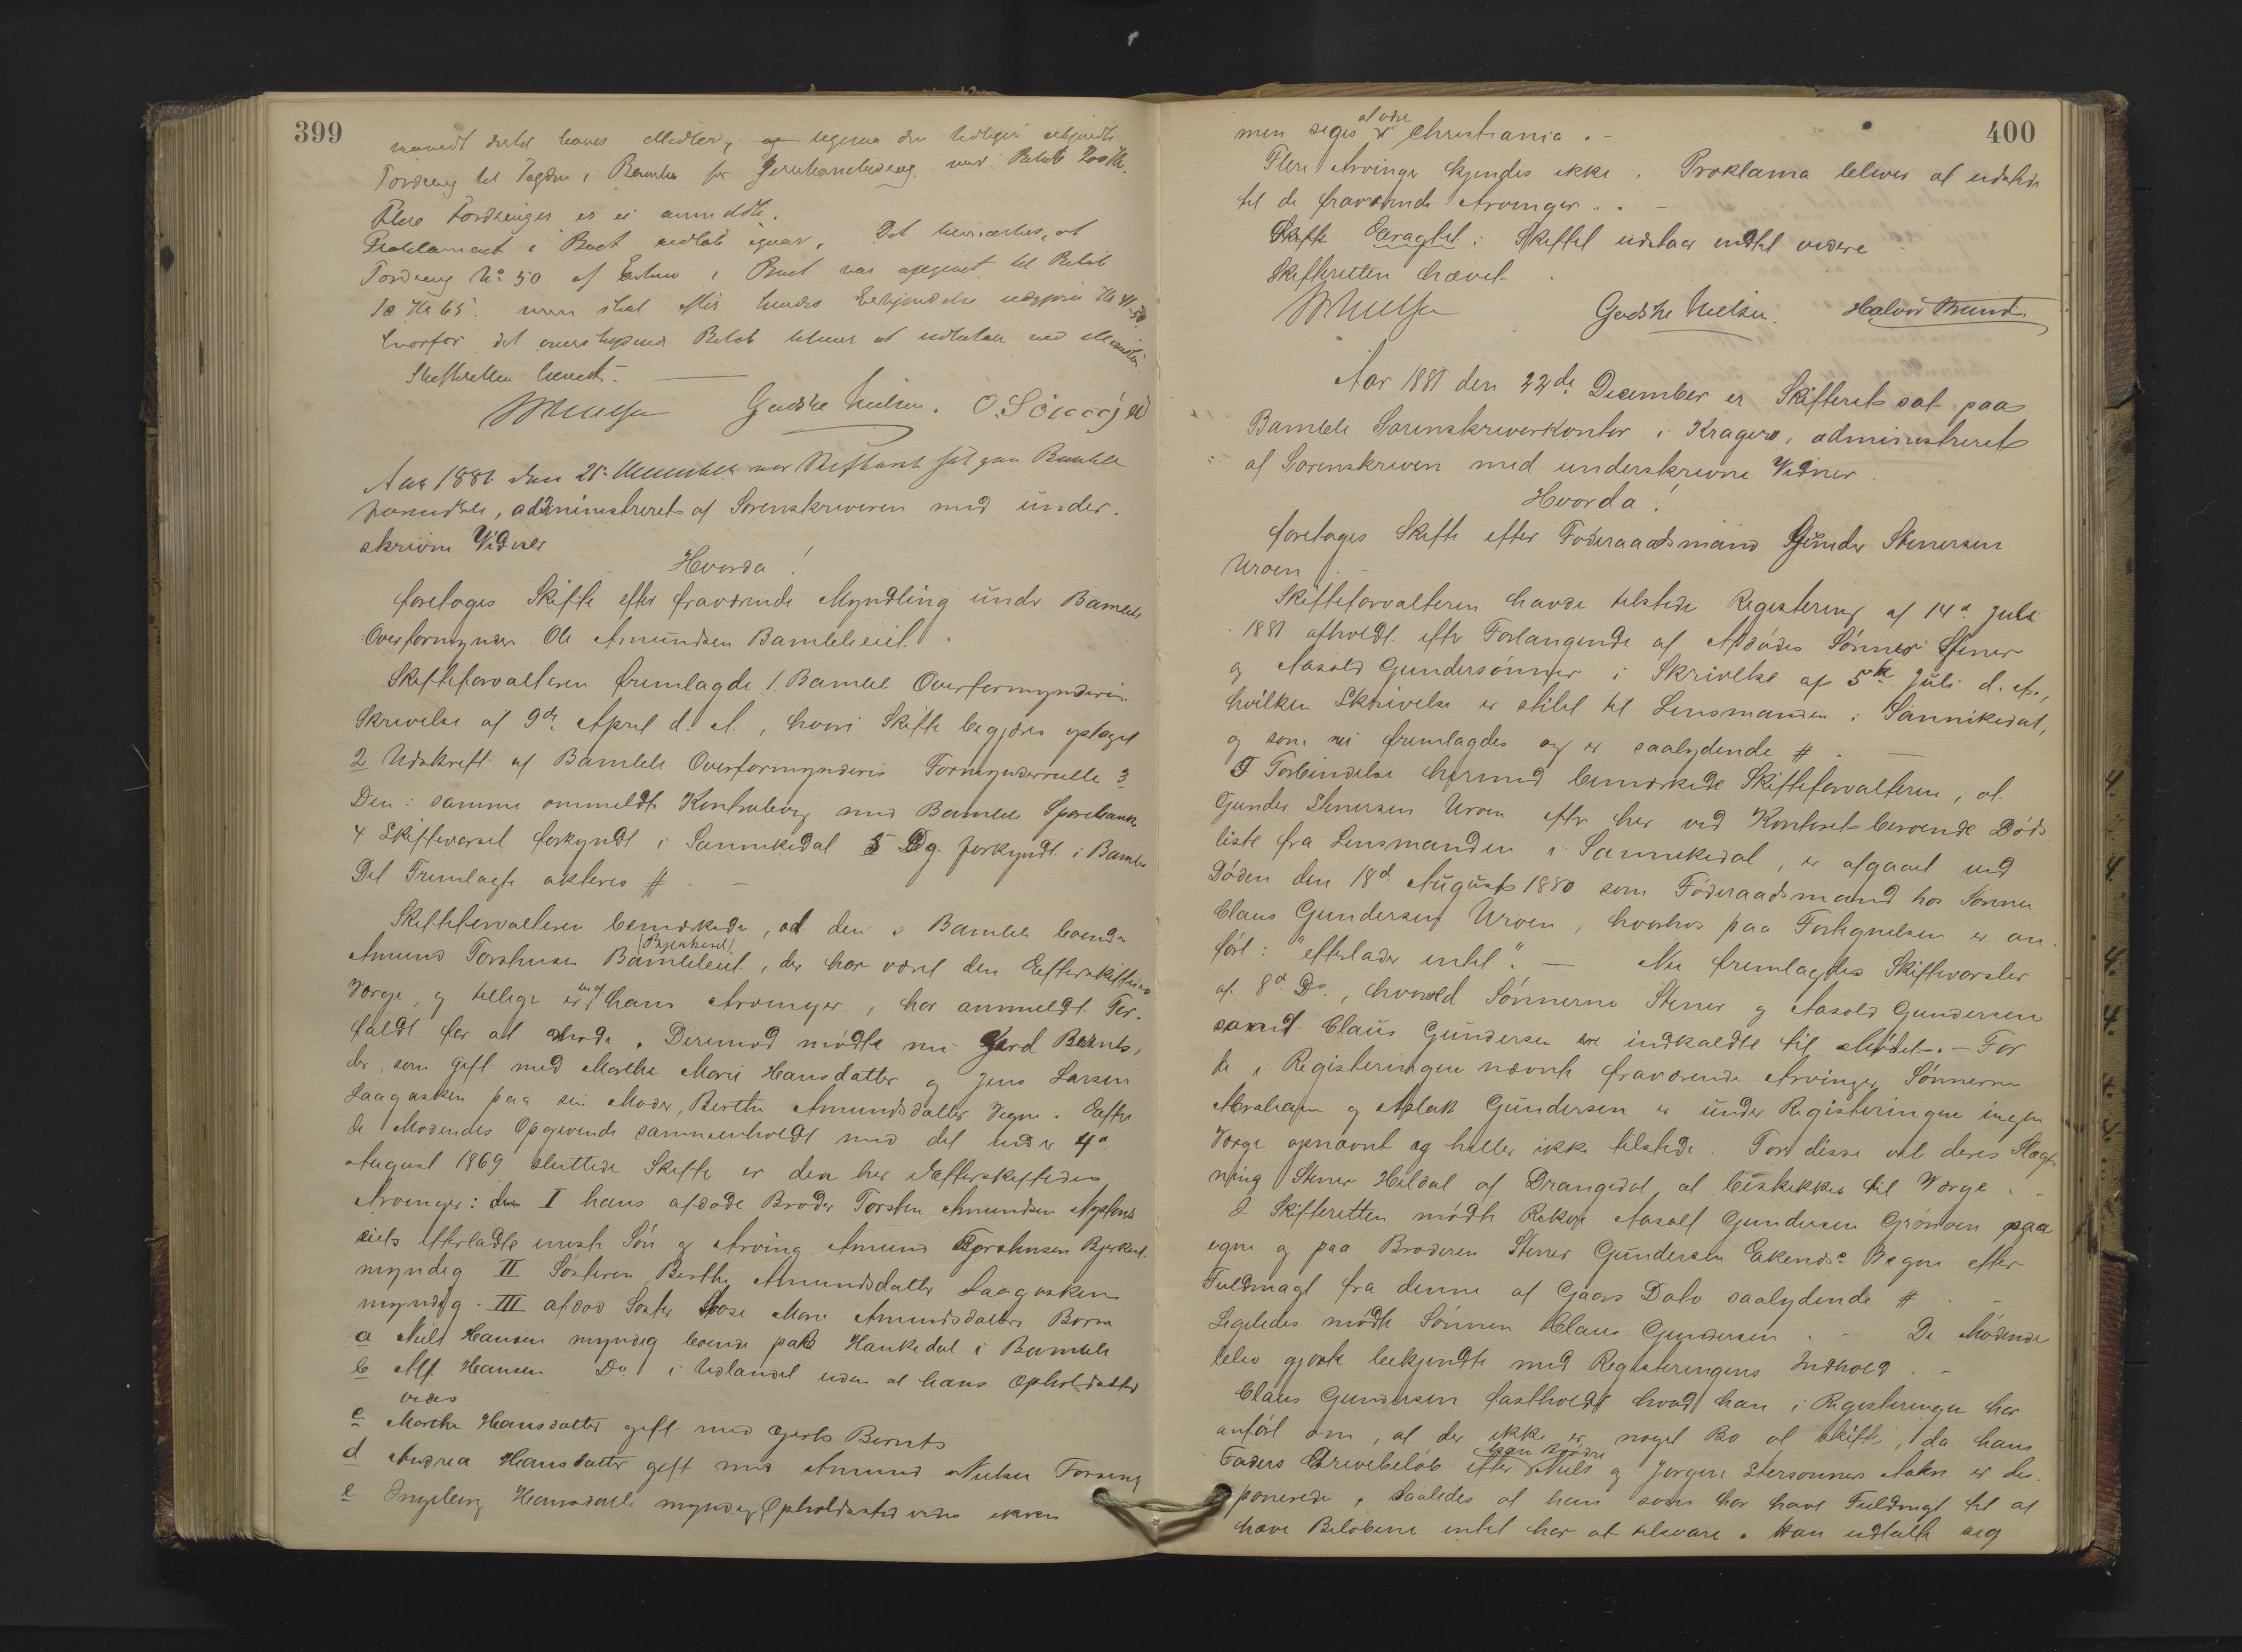 399
nævnt dertil haves Midler, og ligesaa den tidligere
Fordring til Fogden i Bamble for med Beløb 200 Kr.
Flere Fordringer er ei anmeldte.
Proklamaet i Boet udløb igaar. Det bemærkes, at
Fordring No 50 af i Boet var opgivet til Beløb
10 Kr 65 men skal efter hendes Erkjendelse udgjøre Kr 41-50
hvorfor det overskydende Beløb bliver at udbetale
Skifteretten hævet. —
Godske Nielsen. O.
Aar 1881 den 21. December var Skifteret sat paa Bamble
administreret af Sorenskriveren med under-
skrevne Vidner
Hvorda!
foretoges Skifte efter fraværende Myndling under Bamble
Overformynderi Ole Amundsen Bambleeiet.
Skifteforvalteren fremlagde 1. Bamble Overformynderis
Skrivelse af 9de April d. A., hvori Skifte begjæres optaget
2 Udskrift af Bamble Overformynderis Formynderrulle 3
Den i samme ommeldte Kontrabog med Bamble Sparebank
4 Skiftevarsel forkyndt i Sannikedal 5 Dg. forkyndt i Bamble
Det Fremlagte akteres #. —
Skifteforvalteren bemærkede, at den i Bamble boende
(Bjerkeset)
Amund Torstensen Bambleeiet, der har været den Efterskiftedes
Værge, og tillige er en af hans Arvinger, har anmeldt For-
faldt for at møde. Derimod mødte nu Gjerd Bernts,
der, som gift med Marthe Marie Hansdatter og Jens Larsen
Laagasken paa sin Moder, Berthe Amundsdatter Vegne. Efter
de Mødendes Opgivende sammenholdt med det under 4de
August 1869 sluttede Skifte er den her Efterskiftedes
Arvinger: I hans afdøde Broder Torsten Amundsen
eiets efterladte eneste Søn og Arving Amund Torstensen Bjerkeset
myndig II Søsteren Berthe Amundsdatter Laagasken
myndig. III afdød Søster Marie Amundsdatters Børn
a Niels Hansen myndig boende paa Hankedal i Bamble
b Alf Hansen Do i Udlandet uden at hans Opholdssted
vides
c Marthe Hansdatter gift med Gjerds Bernts
d Andrea Hansdatter gift med Amund Nielsen
e Ingeborg Hansdatter myndig Opholdssted vides ikke
400
at være
men siges i Christiania. -
Flere Arvinger kjendes ikke. Proklama bliver at udstede
til de fraværende Arvinger. . -
Skifte Eragtet: Skiftet udstaar indtil videre
Skifteretten hævet.
Godske Nielsen. Halvor
Aar 1881 den 22de December er Skifteret sat paa
Bamble Sorenskriverkontor i Kragerø, administreret
af Sorenskriveren med underskrevne Vidner
Hvorda!
foretoges Skifte efter Føderaadsmand Gunder Stenersen
Uroen. -
Skifteforvalteren havde tilstede Registering af 14de Juli
1881 afholdt efter Forlangende af Afdødes Sønner Stener
og Aasold Gundersønner i Skrivelse af 5te Juli d. A.,
hvilken Skrivelse er stilet til Lensmanden i Sannikedal,
og som nu fremlagdes og er saalydende #. —
I Forbindelse hermed bemærkede Skifteforvalteren, at
Gunder Stenersen Uroen efter her ved Kontoret beroende Døds-
liste fra Lensmanden i Sannikedal, er afgaaet ved
Døden den 18de August 1880 som Føderaadsmand hos Sønnen
Claus Gundersen Uroen, hvorhos paa Fortegnelsen er an-
ført: "efterlader intet". — Nu fremlagdes Skiftevarsler
af 8de Ds., hvorved Sønnerne Stener og Aasold Gundersen
samt Claus Gundersen ere indkaldte til Mødet. - For
de i Registeringen nævnte fraværende Arvinger, Sønnerne
Abraham og Aslak Gundersen er under Registeringen ingen
Værge opnævnt og heller ikke tilstede. For disse vil deres Slægt-
ning Stener Heldal af Drangedal at beskikkes til Værge. -
I Skifteretten mødte Aasolf Gundersen Grønoen paa
egne og paa Broderen Stener Gundersen Eikenæs Vegne efter
Fuldmagt fra denne af Gaars Dato saalydende #. -
Ligeledes mødte Sønnen Claus Gundersen. - De Mødende
blev gjorte bekjendte med Registeringens Indhold. -
Claus Gundersen fastholdt hvad han i Registeringen har
anført om, at der ikke er noget Bo at skifte, da hans
hans Brødre
Faders Arvebeløb efter Niels og Jørgen Stersønner Aakre er de-
ponerede, saaledes at han som har havt Fuldmagt til at
hæve Beløbene intet har at tilsvare. Han udtalte sig